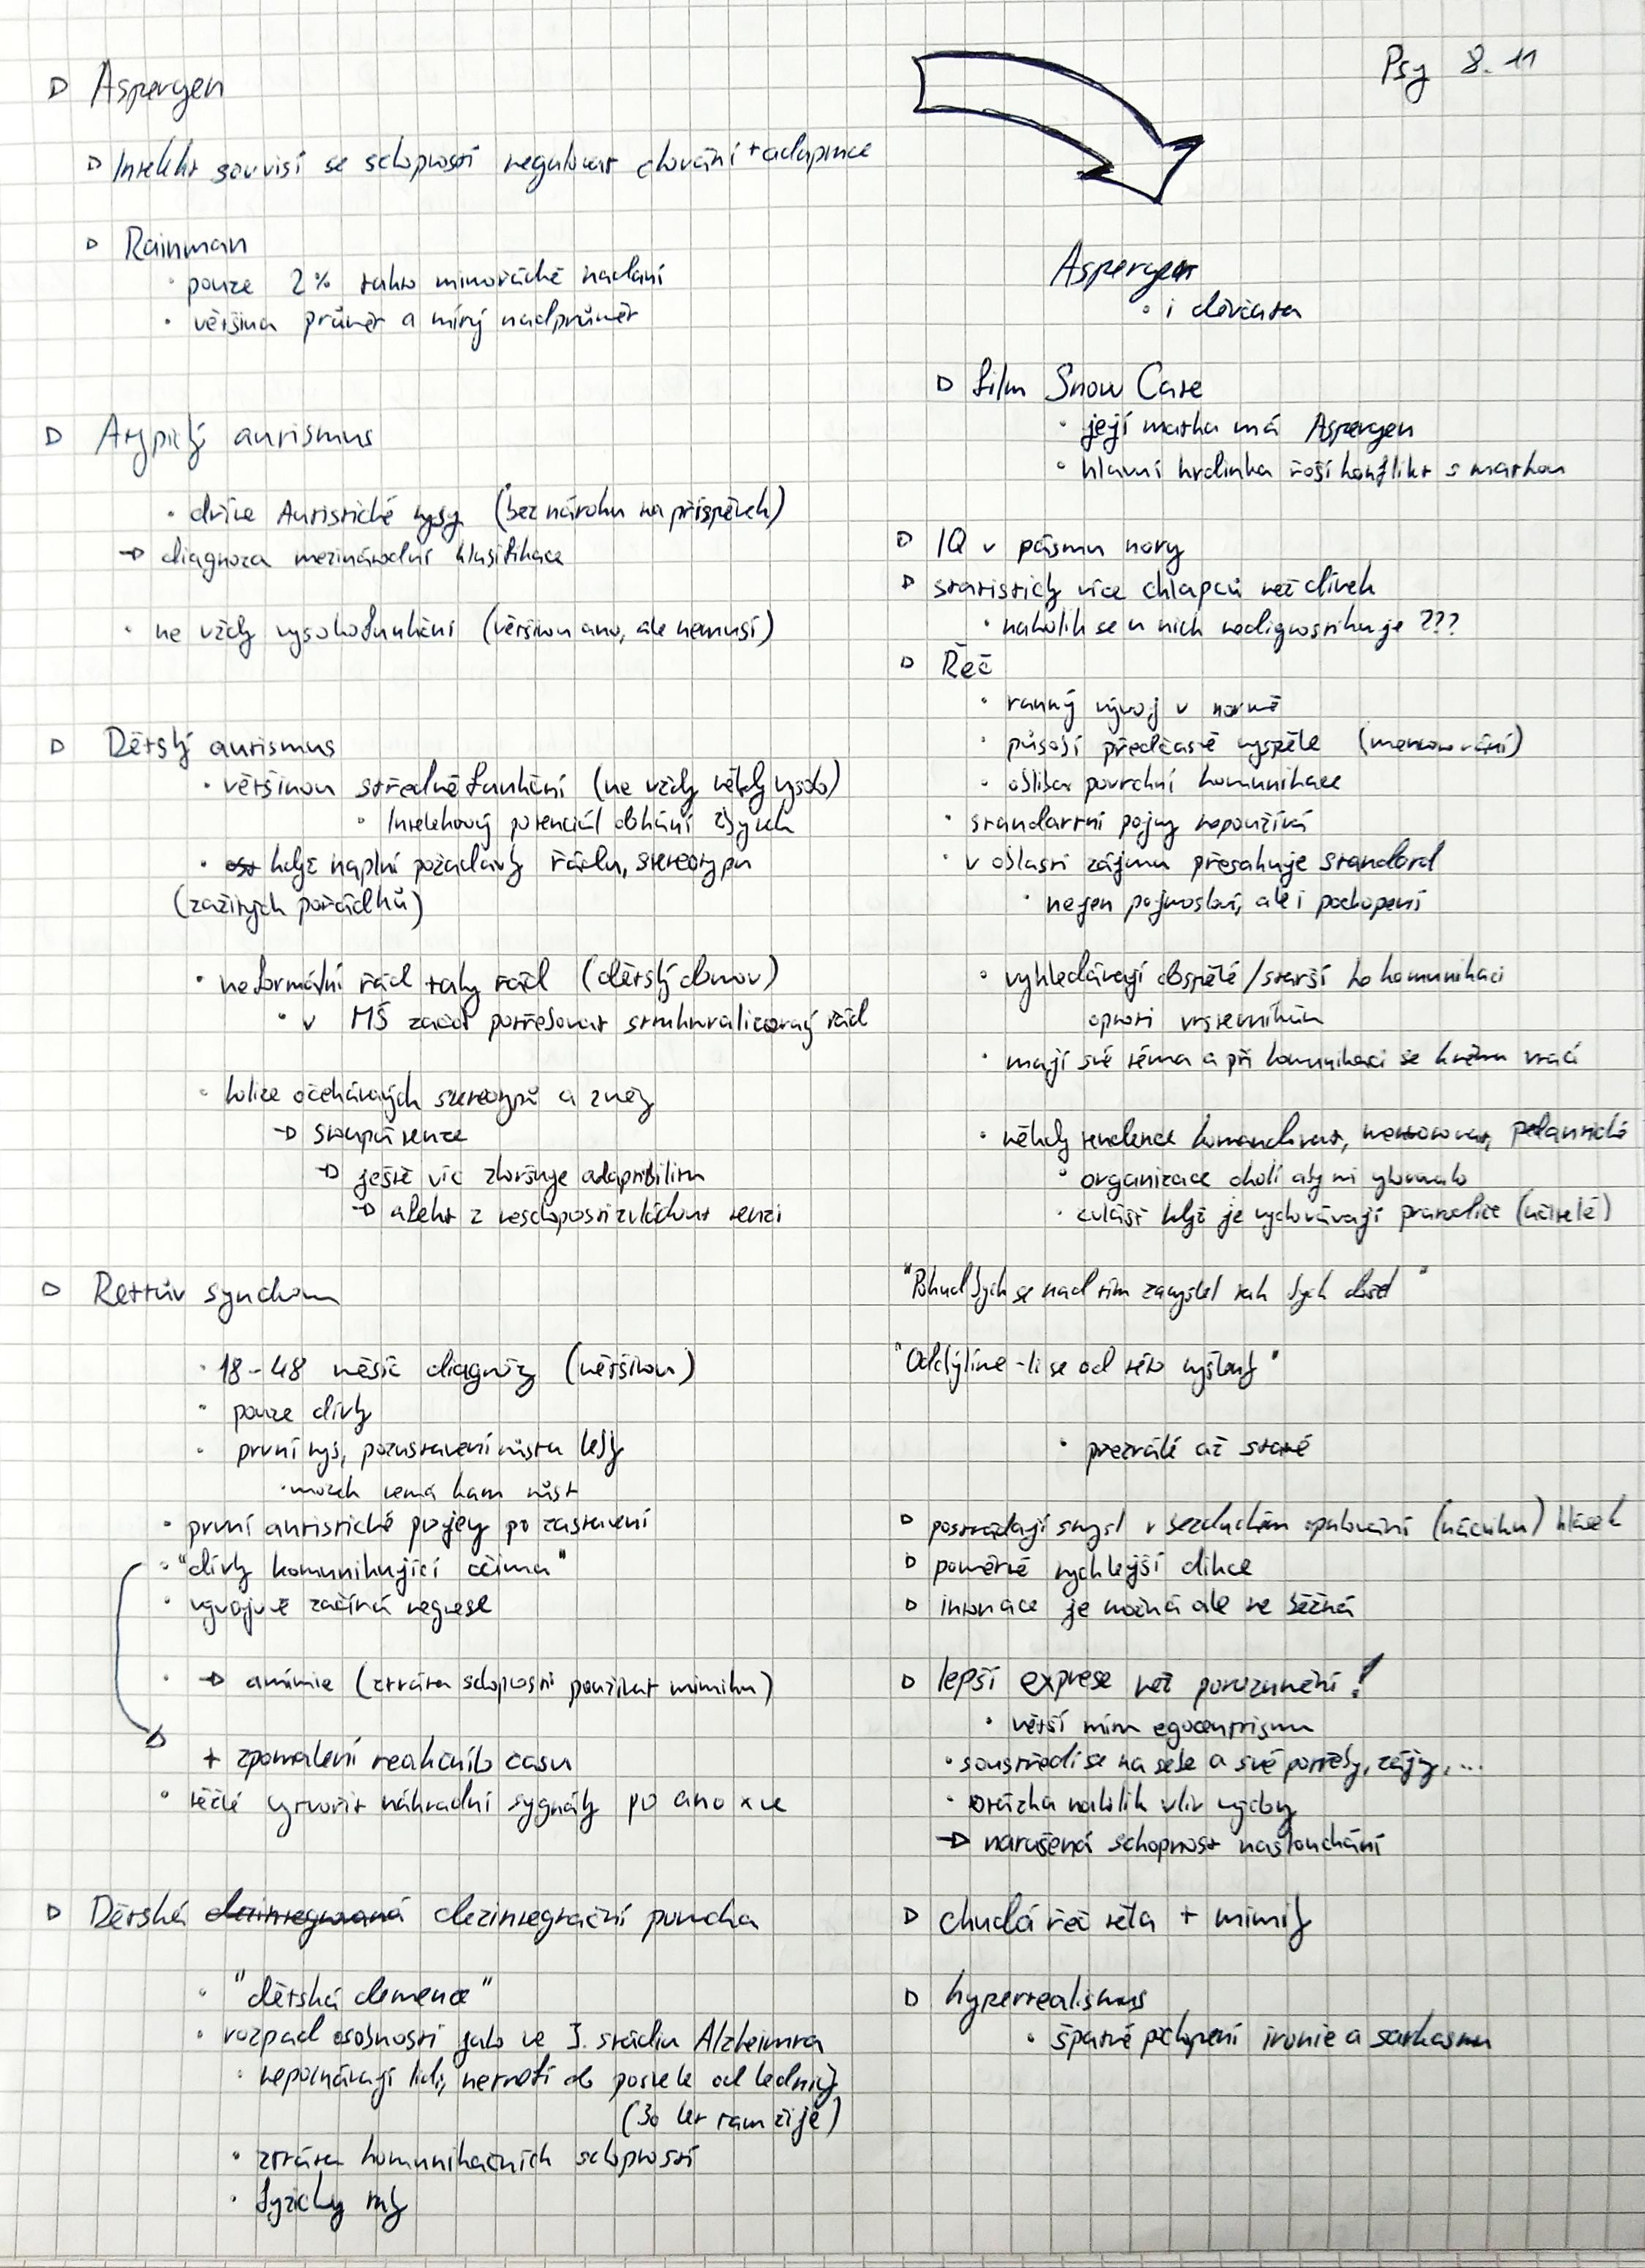 Psy 8.11
▷ Aspergen
▷ Intelekt souvisí se schopností regulovat chování + adaptace
▷ Rainman
• pouze 2% takto mimořádně nadaní
• většina průměr a mírný nadprůměr
▷ Atypický autismus
• dříve Autistické rysy (bez nároku na příspěvek)
→ diagnoza mezinárodní klasifikace
• ne vždy vysokofunkční (většinou ano, ale nemusí)
▷ Dětský autismus
• většinou středně funkční (ne vždy někdy vysoko)
• Intelektový potenciál dohání zbytek
• když naplní požadavky řádu, stereotypu
(zažitých pořádků)
• neformální řád taky řád (dětský domov)
• v MŠ začne potřebovat strukturalizovaný řád
• kolize očekávaných stereotypů a změny
→ stoupá tenze
→ ještě víc zhoršuje adaptibilitu
→ afekt z neschopnosti zvládnout tenzi
▷ Rettův syndrom
• 18-48 měsíc diagnózy (většinou)
• pouze dívky
• první rys, pozastavení růstu lebky
• mozek nemá kam růst
• první autistické projevy po zastavení
• "dívky komunikující očima"
• vývojově začíná regrese
• → amimie (ztráta schopnosti používat mimiku)
+ zpomalení reakčního času
• těžké vytvořit náhradní sygnály po ano x ne
▷ Dětská dezintegrovaná dezintegrační porucha
• "dětská demence"
• rozpad osobnosti jako ve 3. stádiu Alzheimra
• nepoznávají lidi, netrefí do postele od lednice
(30 let tam žije)
• ztráta komunikačních schopností
• fyzicky
Aspergen
• i děvčata
▷ film Snow Cake
• její matka má Aspergen
• hlavní hrdinka řeší konflikt s matkou
▷ IQ v pásmu normy
▷ statisticky více chlapců než dívek
• nakolik se u nich nediagnostikuje ???
▷ Řeč
• ranný vývoj v normě
• působí předčasně vyspěle (mentorování)
• obliba povrchní komunikace
• standartní pojmy nepoužívá
• v oblasti zájmu přesahuje standard
• nejen pojmosloví, ale i pochopení
• vyhledávají dospělé/starší ke komunikaci
oproti vrstevníkům
• mají své téma a při komunikaci se k němu vrací
• někdy tendence komandovat, mentorovat, pedantické
• organizace okolí aby mi vyhovovalo
• zvlášť když je vychovávají prarodiče (učitelé)
"Pokud bych se nad tím zamyslel tak bych došel"
"Odchýlíme-li se od této myšlenky"
• přezrálé až staré
▷ postrádají smysl v bezduchém opakování (nácviku) hlásek
▷ poměrně rychlejší dikce
▷ intonace je možná ale ne běžná
▷ lepší exprese než porozumění!
• větší míra egocentrismu
• soustředí se na sebe a své potřeby, zájmy, ...
• otázka nakolik vliv výchovy
→ narušená schopnost naslouchání
▷ chudá řeč těla + mimiky
▷ hyperrealismus
• špatné pochopení ironie a sarkasmu